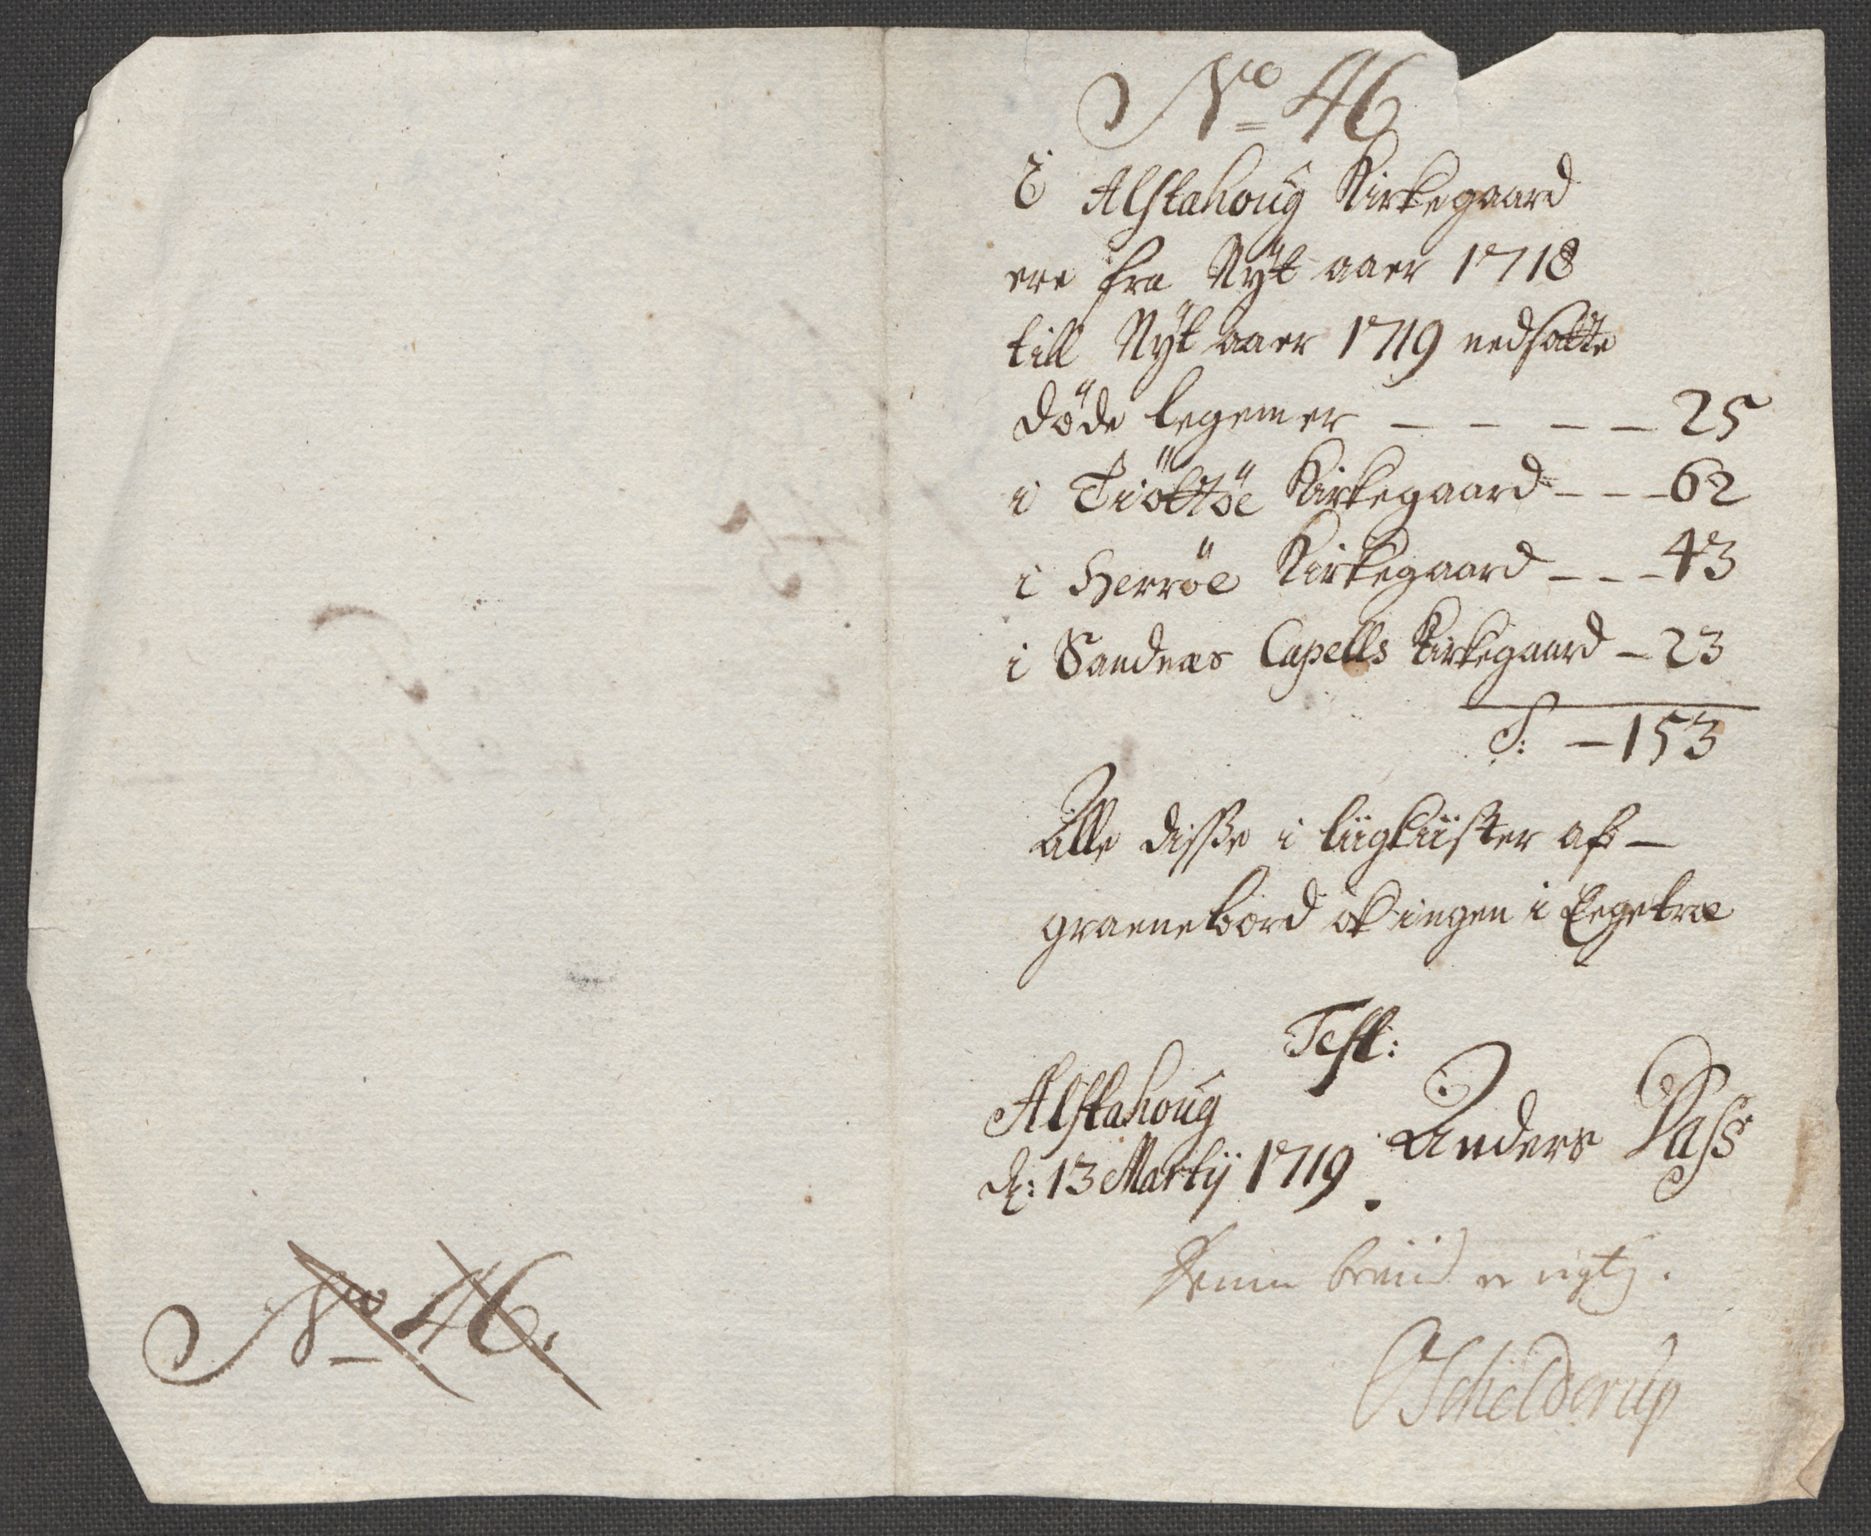 No 46
I Alstahoug Kirkegaard
ere fra Nÿt aaer 1718
till Nÿt aaer 1719 nedsatte
döde legemer - - - - - 25
i Tiöttöe Kirkegaard - - - 62
i Herröe Kirkegaard - - - 43
i Sandnæs Capells Kirkegaard - 23
S: - 153
Alle disse i liigkiister af -
graenebord ok ingen i Eegetræ
Test:
Alstahoug
d: 13 Martij 1719. Anders Dass
er rigtig.
Schelderup
No 46.